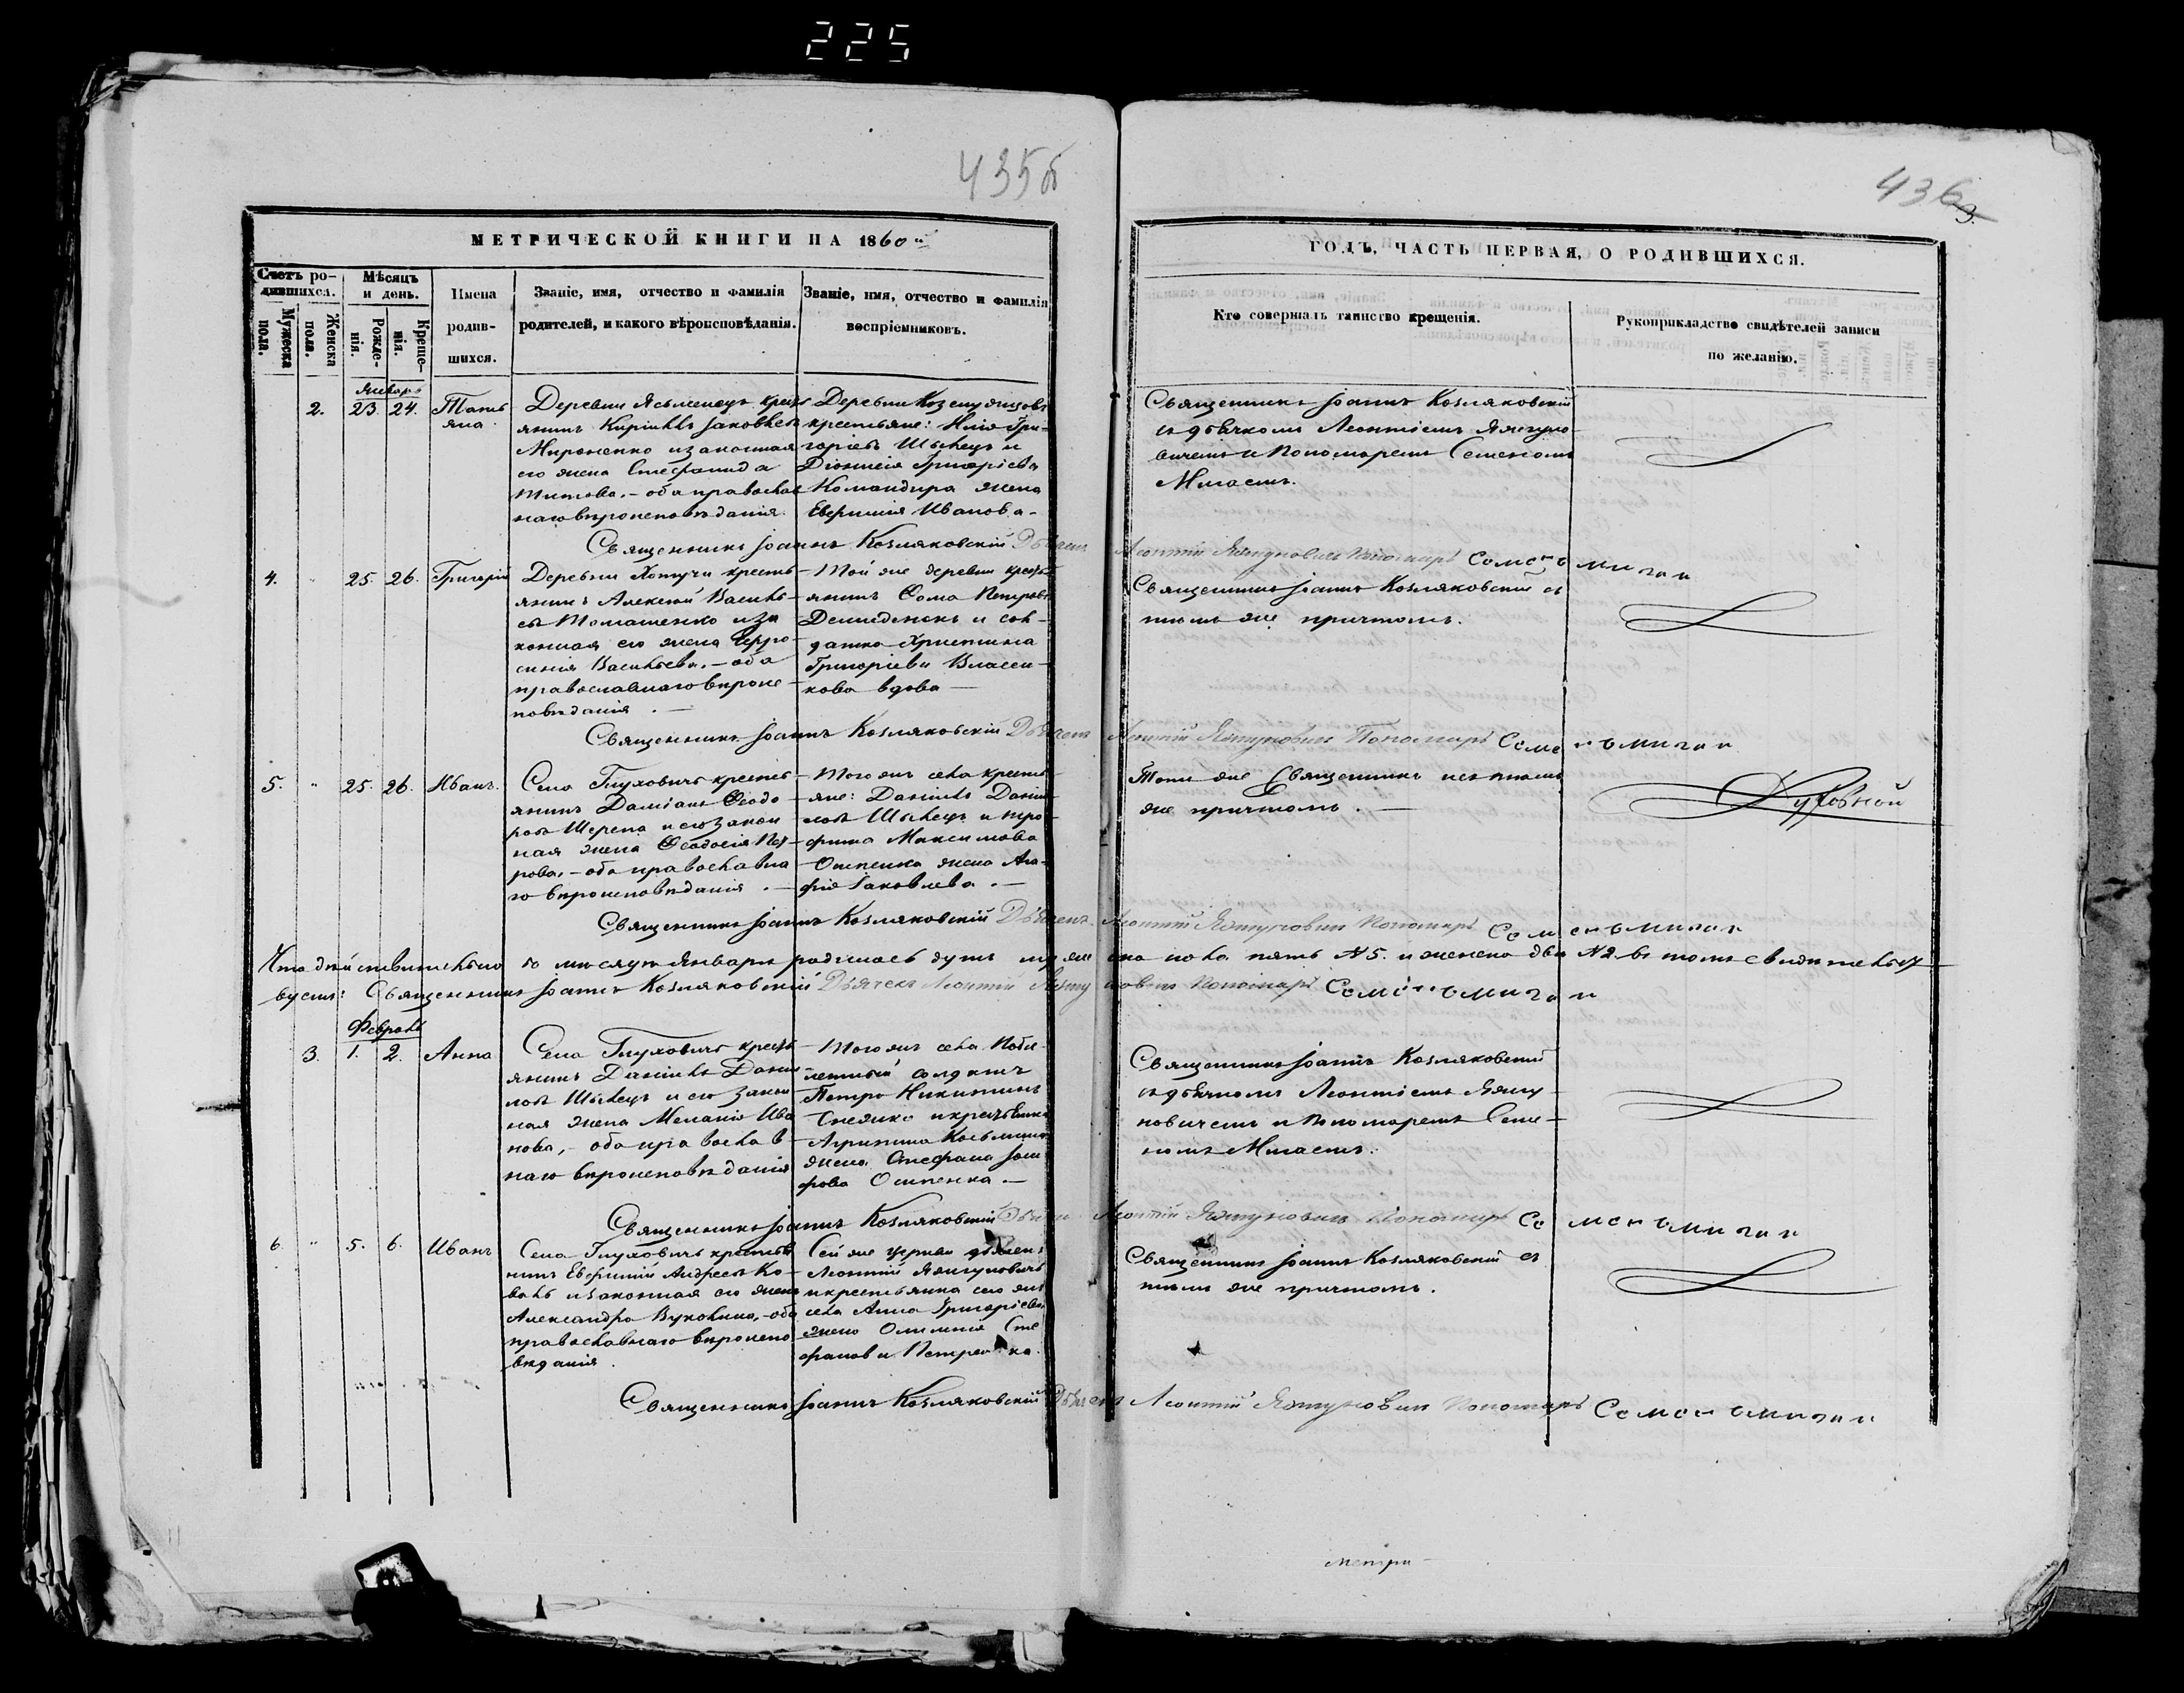 225
435об
436
3.
МЕТРИЧЕСКОЙ КНИГИ НА 1860й
ГОДЪ, ЧАСТЬ ПЕРВАЯ, О РОДИВШИХСЯ.
Счетъ ро-
дившихся.
Мужеска
пола.
Женска
пола.
Мѣсяцъ
и день.
Рожде-
нія.
Креще-
нія.
Имена
родив-
шихся.
Званіе, имя, отчество и фамилія
родителей, и какого вѣроисповѣданія.
Званіе, имя, отчество и фамилія
воспріемниковъ.
Кто совершалъ таинство крещенія.
Рукоприкладство свидѣтелей записи
по желанію.
Январь
2. 23. 24. Татья
яна.
Деревни Ясьменецъ кресть
янинъ Кириллъ Іаковлевъ
Мироненко и законная
его жена Стефанида
Титова. – оба православ
наго вѣроисповѣданія.
Деревни
крестьяне: Илія Гри-
горіевъ Швецъ и
Діонисія Григоріева
Командира жена
Евфимія Иванова –
Священникъ Іоаннъ Козляковскій
съ дьячкомъ Леонтіемъ Яжгуно
вичемъ и Пономаремъ Семеномъ
Мигаемъ.
Священникъ Іоаннъ Козляковскій Дьячекъ Леонтій Яжгуновичъ Пономарь Семенъ Мигай
4. " 25. 26. Григорій
Деревни Хотучи кресть
янинъ Алексій Василь-
евъ Томашенко и за
конная его жена Евфро-
синія Васильева. – оба
православнаго вѣроис-
повѣданія. –
Той же деревни кресть
янинъ Ѳома Петровъ
Демиденокъ и сол-
датка Христина
Григоріева Власен-
кова вдова –
Священникъ Іоаннъ Козляковскій съ
тѣмъ же причтомъ.
Священникъ Іоаннъ Козляковскій Дьячекъ Леонтій Яжгуновичъ Пономарь Семенъ Мигай
5. " 25. 26. Иванъ.
Села Глуховичъ кресть
янинъ Даміанъ Ѳеодо
ровъ Шерепа и его закон
ная жена Ѳеодосія Пет-
рова. – оба православна
го вѣроисповѣданія. –
Того жъ села кресть
яне: Даніилъ Дани-
ловъ Швецъ и Тро
фима Максимова
Осипенка жена Ага-
фія Іаковлева. –
Тотъ же Священникъ и съ тѣмъ
же причтомъ. –
Духовной
Священникъ Іоаннъ Козляковскій Дьячекъ Леонтій Яжгуновичъ Пономарь Семенъ Мигай
Что дѣйствительно въ мѣсяцѣ Январѣ родилось душъ мужеска пола пять N 5. и женска два N 2. въ томъ свидѣтельст
вуемъ: Священникъ Іоаннъ Козляковскій Дьячекъ Леонтій Яжгуновичъ Пономарь Семенъ Мигай
Февраль
3. 1. 2. Анна
Села Глуховичъ кресть
янинъ Даніилъ Дани
ловъ Швецъ и его закон
ная жена Меланія Ива
нова, – оба православ
наго вѣроисповѣданія
Того жъ села
солдатъ
Петръ Никитинъ
и крестьянина
Агрипина Косьмина
жена Стефана
Осипенка –
Священникъ Іоаннъ Козляковскій
съ дьячкомъ Леонтіемъ Яжгу-
новичемъ и Пономаремъ Семе-
номъ Мигаемъ.
Священникъ Іоаннъ Козляковскій Дьячекъ Леонтій Яжгуновичъ Пономарь Семенъ Мигай
6. " 5. 6. Иванъ
Села Глуховичъ крестья
нинъ Евфимій Андреевъ Ко-
валь и законная его жена
Александра Вуколина, – оба
православнаго вѣроиспо
вѣданія.
Сей же церкви дьячекъ
Леонтій Яжгуновичъ
и крестьянка сего жъ
села Анна Григоріева
жена Стe
фанова Петренка.
Священникъ Іоаннъ Козляковскій съ
тѣмъ же причтомъ.
Священникъ Іоаннъ Козляковскій Дьячекъ Леонтій Яжгуновичъ Пономарь Семенъ Мигай
Метри-